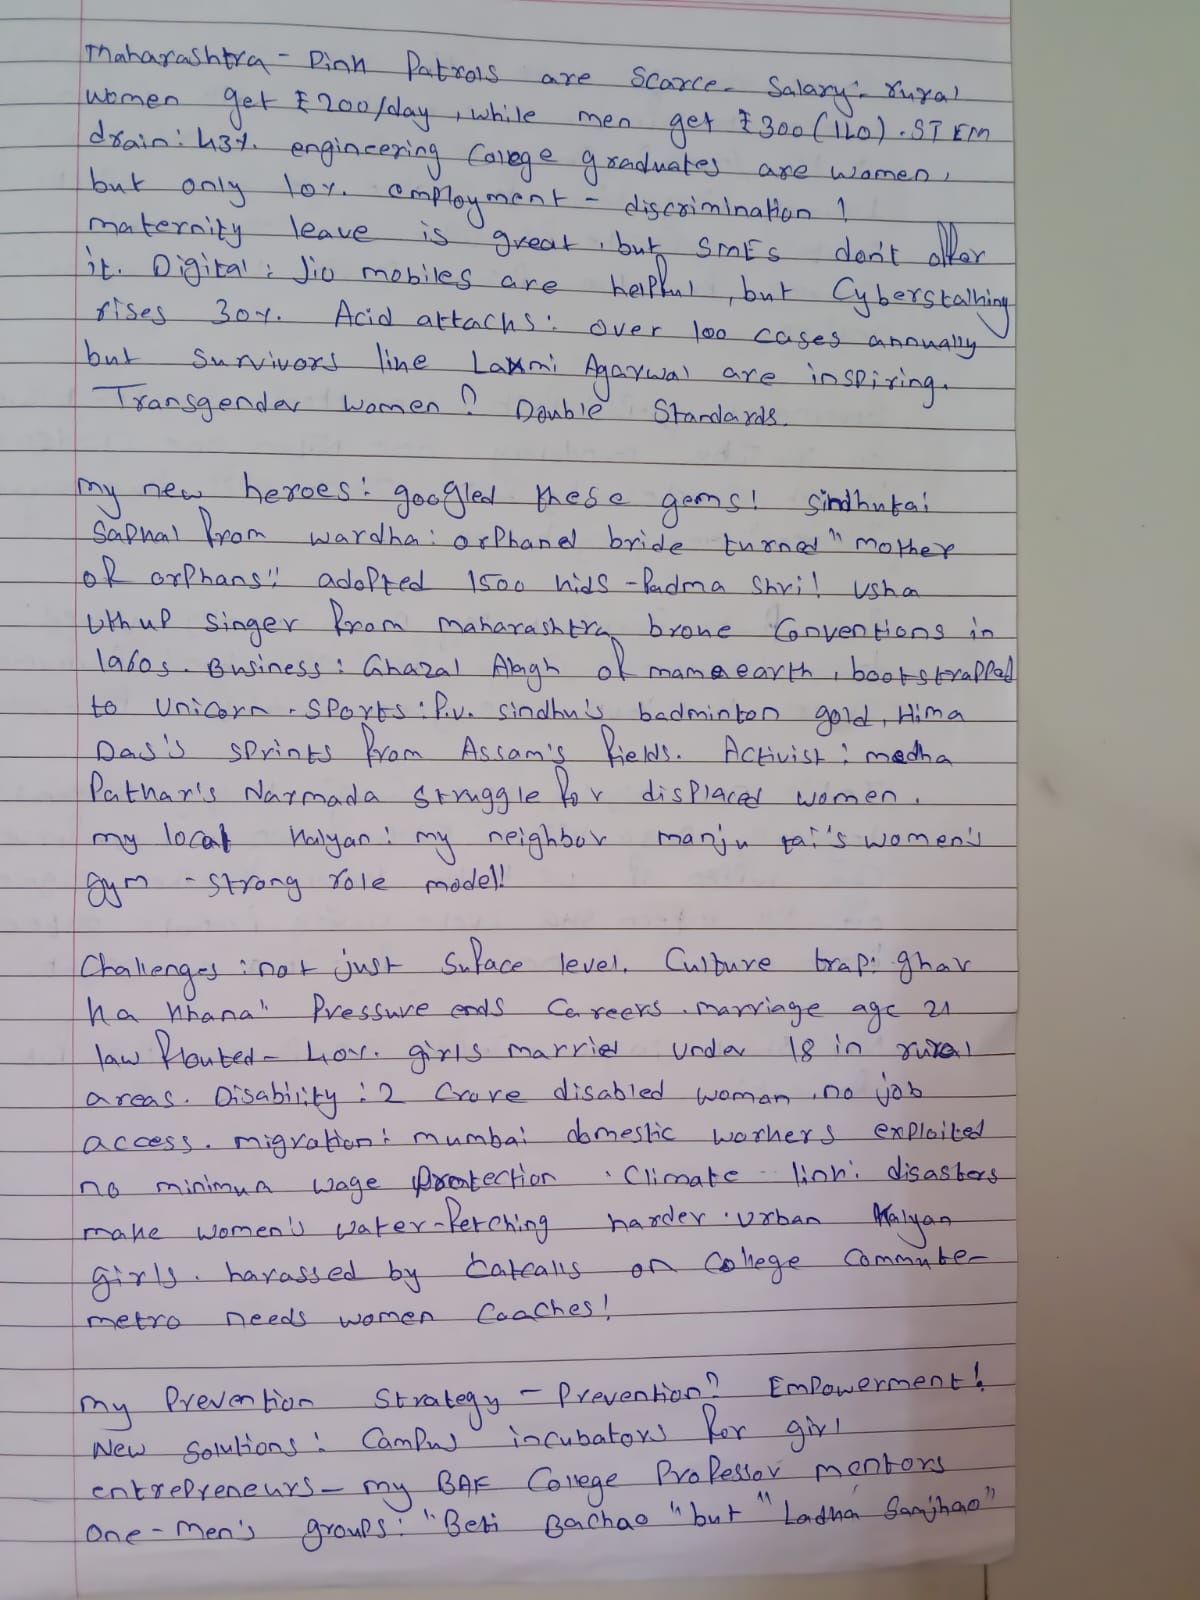 Maharashtra - Pink Patrols are scarce. Salary:- rural
women get ₹200/day, while men get ₹300 (ILO). STEM
drain: 43% engineering College graduates are women,
but only 10% employment - discrimination!
maternity leave is great, but SMEs don't offer
it. Digital: Jio mobiles are helpful, but Cyberstalking
rises 30%. Acid attacks: over 100 cases annually
but survivors like Laxmi Agarwal are inspiring.
Transgender women? Double Standards.
My new heroes: googled these gems! Sindhutai
Sapkal from wardha: orphaned bride turned "mother
of orphans": adopted 1500 kids - Padma Shri! Usha
Uthup singer from maharashtra broke Conventions in
1960s. Business: Ghazal Alagh of mamaearth, bootstrapped
to Unicorn. Sports: P.v. sindhu's badminton gold, Hima
Das's sprints from Assam's fields. Activist: medha
Patkar's Narmada struggle for displaced women.
my local Kalyan: my neighbor manju tai's women's
gym - strong role model!
Challenges: not just suface level. Culture trap: ghar
ka khana" Pressure ends Careers. marriage age 21
law flouted - 40% girls married under 18 in rural
areas. Disability: 2 Crore disabled woman, no job
access. migration: mumbai domestic workers exploited
no minimun wage protection. Climate - link: disasters
make women's water-fetching harder. urban Kalyan
girls. harassed by catcalls on College Commute-
metro needs women Coaches!
my Prevention Strategy - Prevention? Empowerment!
New solutions: Campus incubators for girl
entrepreneurs - my BAF College Professor mentors
one-men's groups: "Beti Bachao "but "Ladka Samjhao"